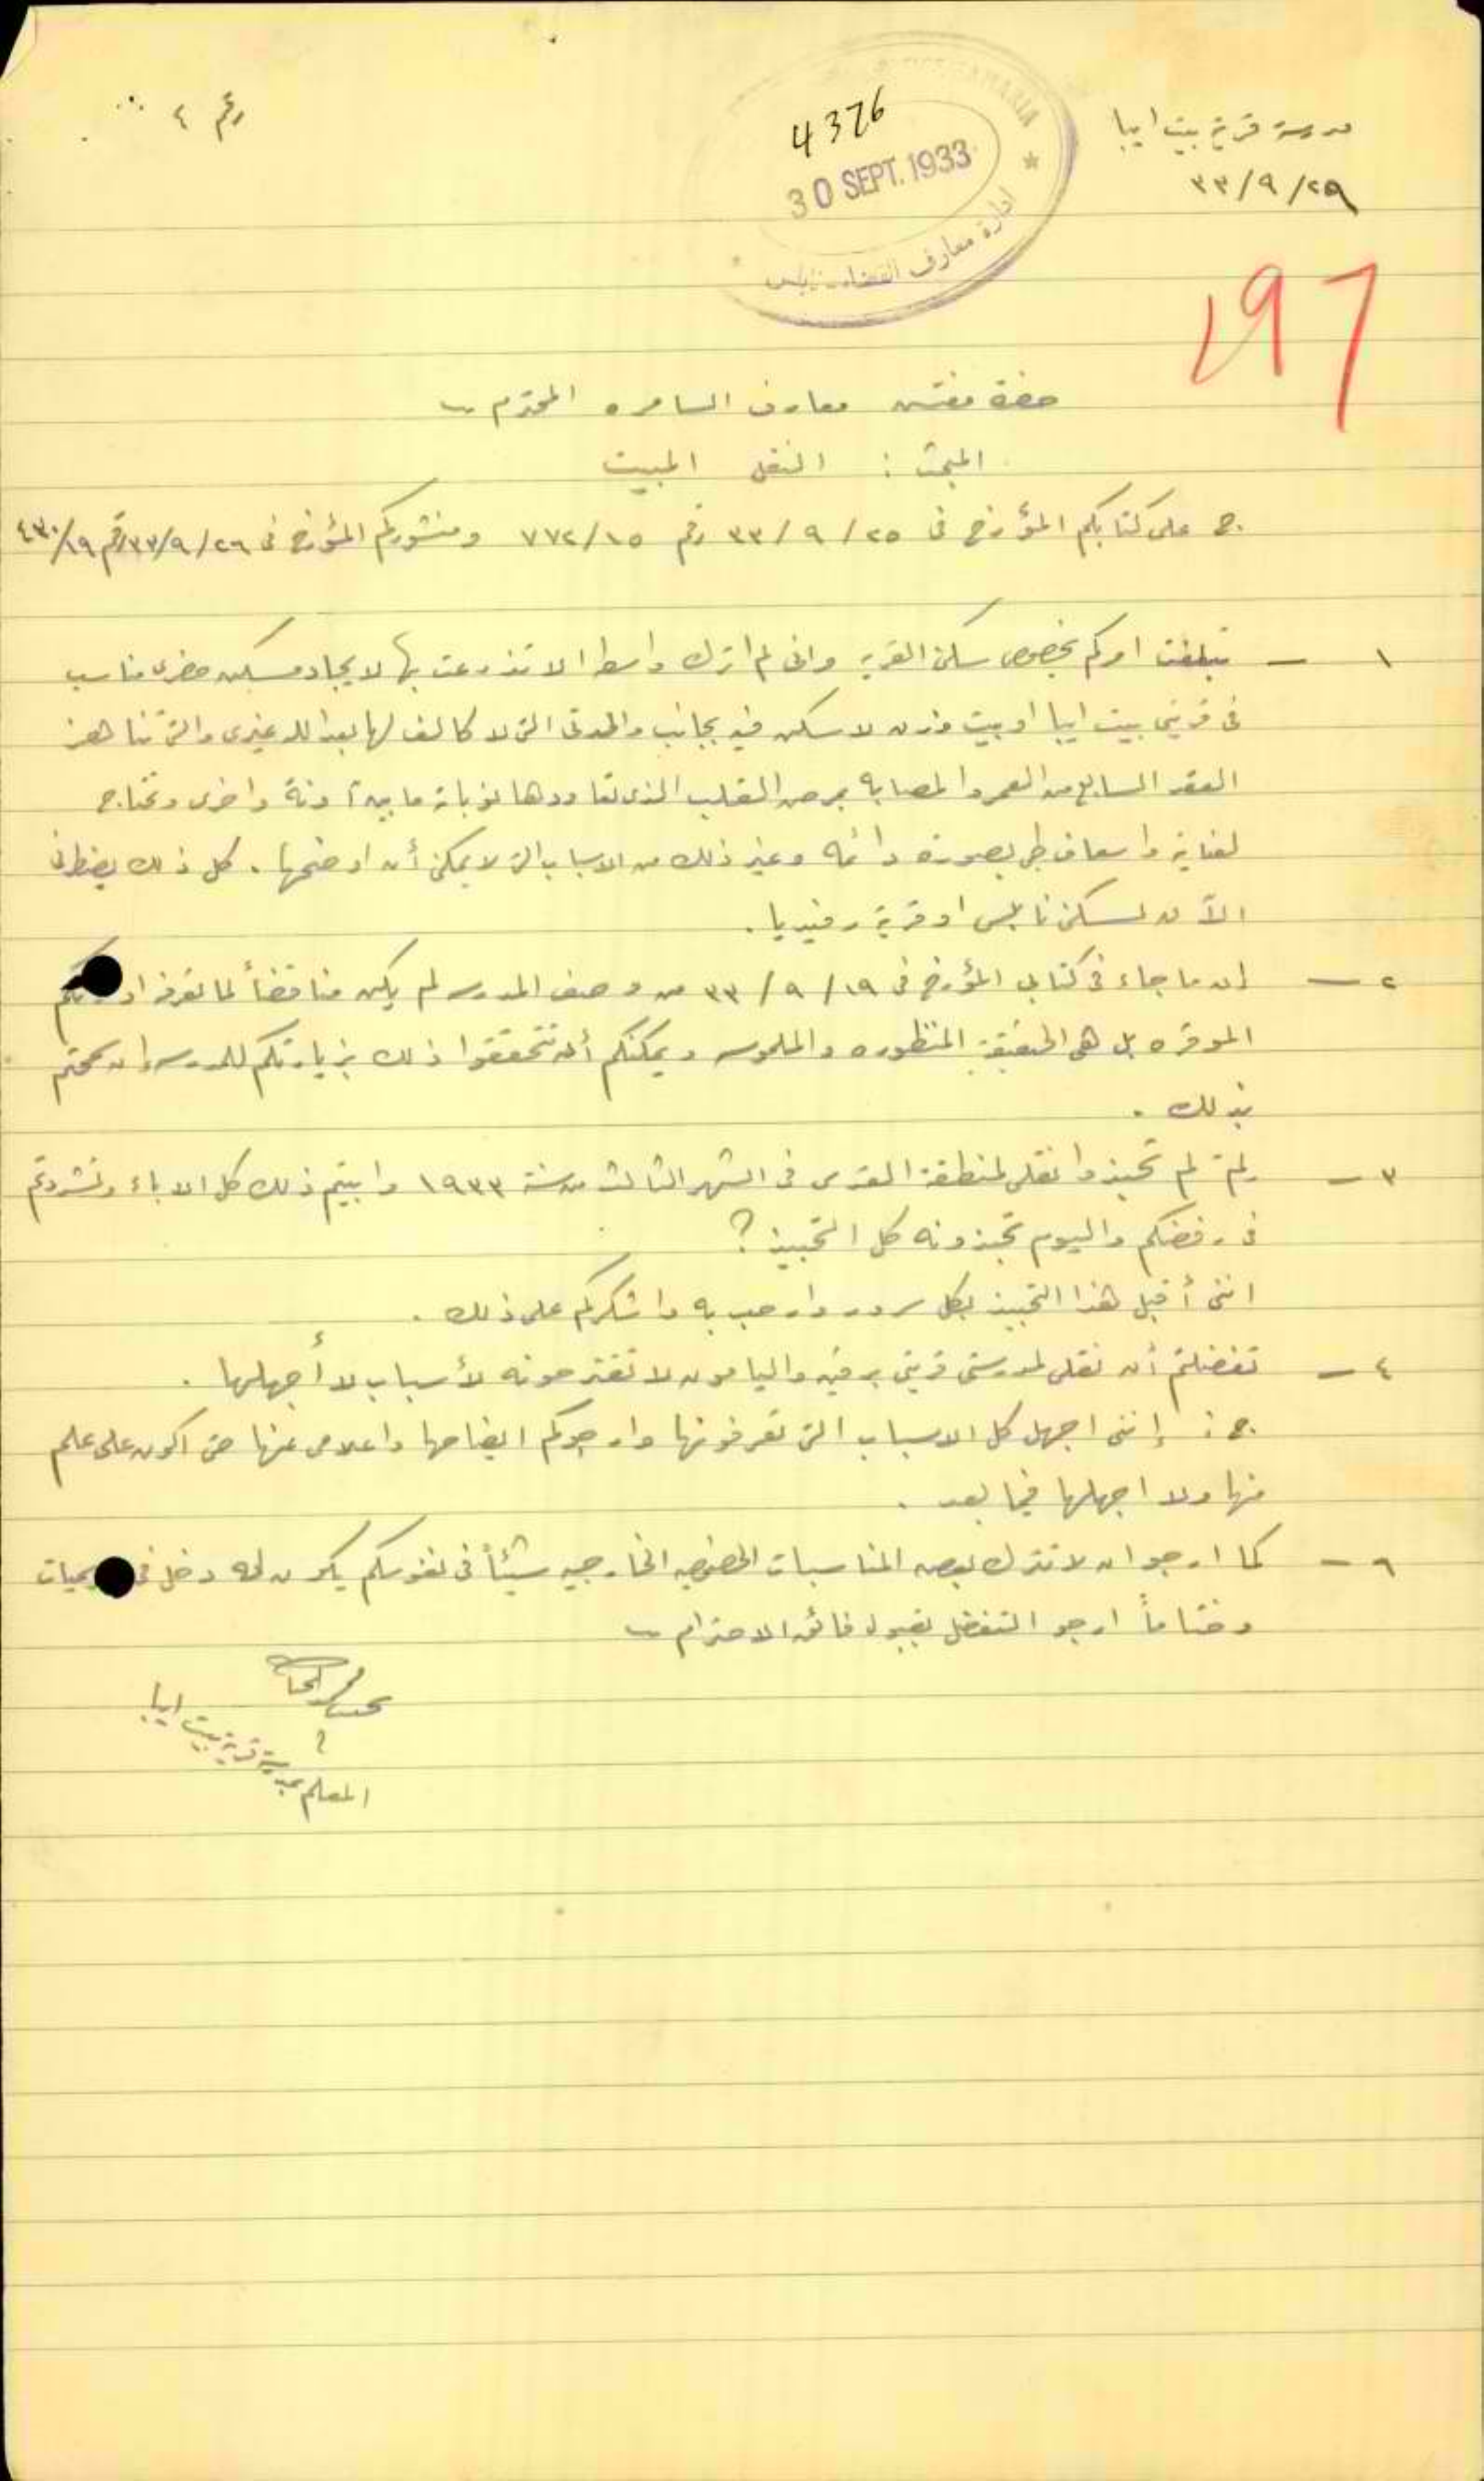 مدرسة قرية بيت ايبا
٢٩/٩/٣٣
رقم ٤
4376
30 SEPT. 1933
ادارة معارف القضاء - نابلس
197
حضرة مفتش معارف السامره المحترم
المبحث : النقل المبيت
ج على كتابكم المؤرخ في ٢٥/٩/٣٣ رقم ٧٧٢/١٥ ومنشوركم المؤرخ في ٢٦/٩/٣٣ رقم ٤٣٠/١٩
١ – تبلغت امركم بخصوص سكن القريه واني لم اترك واسطه الا تذرعت بها لايجاد مسكن مناسب
في قريتي بيت ايبا او بيت وزن لاسكن فيه بجانب والدتي التي لا كالف لها بعد الله غيري والتي تناهز
العقد السابع من العمر والمصابه بمرض القلب الذي تعاودها نوباته ما بين آونة واخرى وتحتاج
لعناية واسعاف طبي بصورة دائمه وغير ذلك من الاسباب التي لا يمكن أن اوضحها . كل ذلك يضطرني
الآن لسكن نابلس او قرية رفيديا .
٢ – ان ما جاء في كتابي المؤرخ في ١٩/٩/٣٣ من وصف المدرسه لم يكن مناقضاً لما تعرفه
الموقره بل هي الحقيقة المنظوره والملموسه ويمكنكم أن تتحققوا ذلك بزيارتكم للمدرسه ان سمحتم
بذلك .
٣ – لِمَ لم تحبذوا نقلي لمنطقة القدس في الشهر الثالث من سنة ١٩٣٣ وابيتم ذلك كل الاباء وتشددتم
في رفضكم واليوم تحبذونه كل التحبيذ ؟
انني أقبل هذا التحبيذ بكل سرور وارحب به واشكركم على ذلك .
٤ – تفضلتم أن نقلي لمدرستي قريتي برقين واليامون لا تقترحونه لأسباب لا أجهلها .
ج : إنني اجهل كل الاسباب التي تعرفونها وارجوكم ايضاحها واعلامي عنها حتى اكون على علم
منها ولا اجهلها فيما بعد .
٦ – كما ارجو ان لا تترك بعض المناسبات الخارجيه شيئاً في نفوسكم يكون له دخل في
وختاماً ارجو التفضل بقبول فائق الاحترام
المعلم بمدرسة قرية بيت ايبا